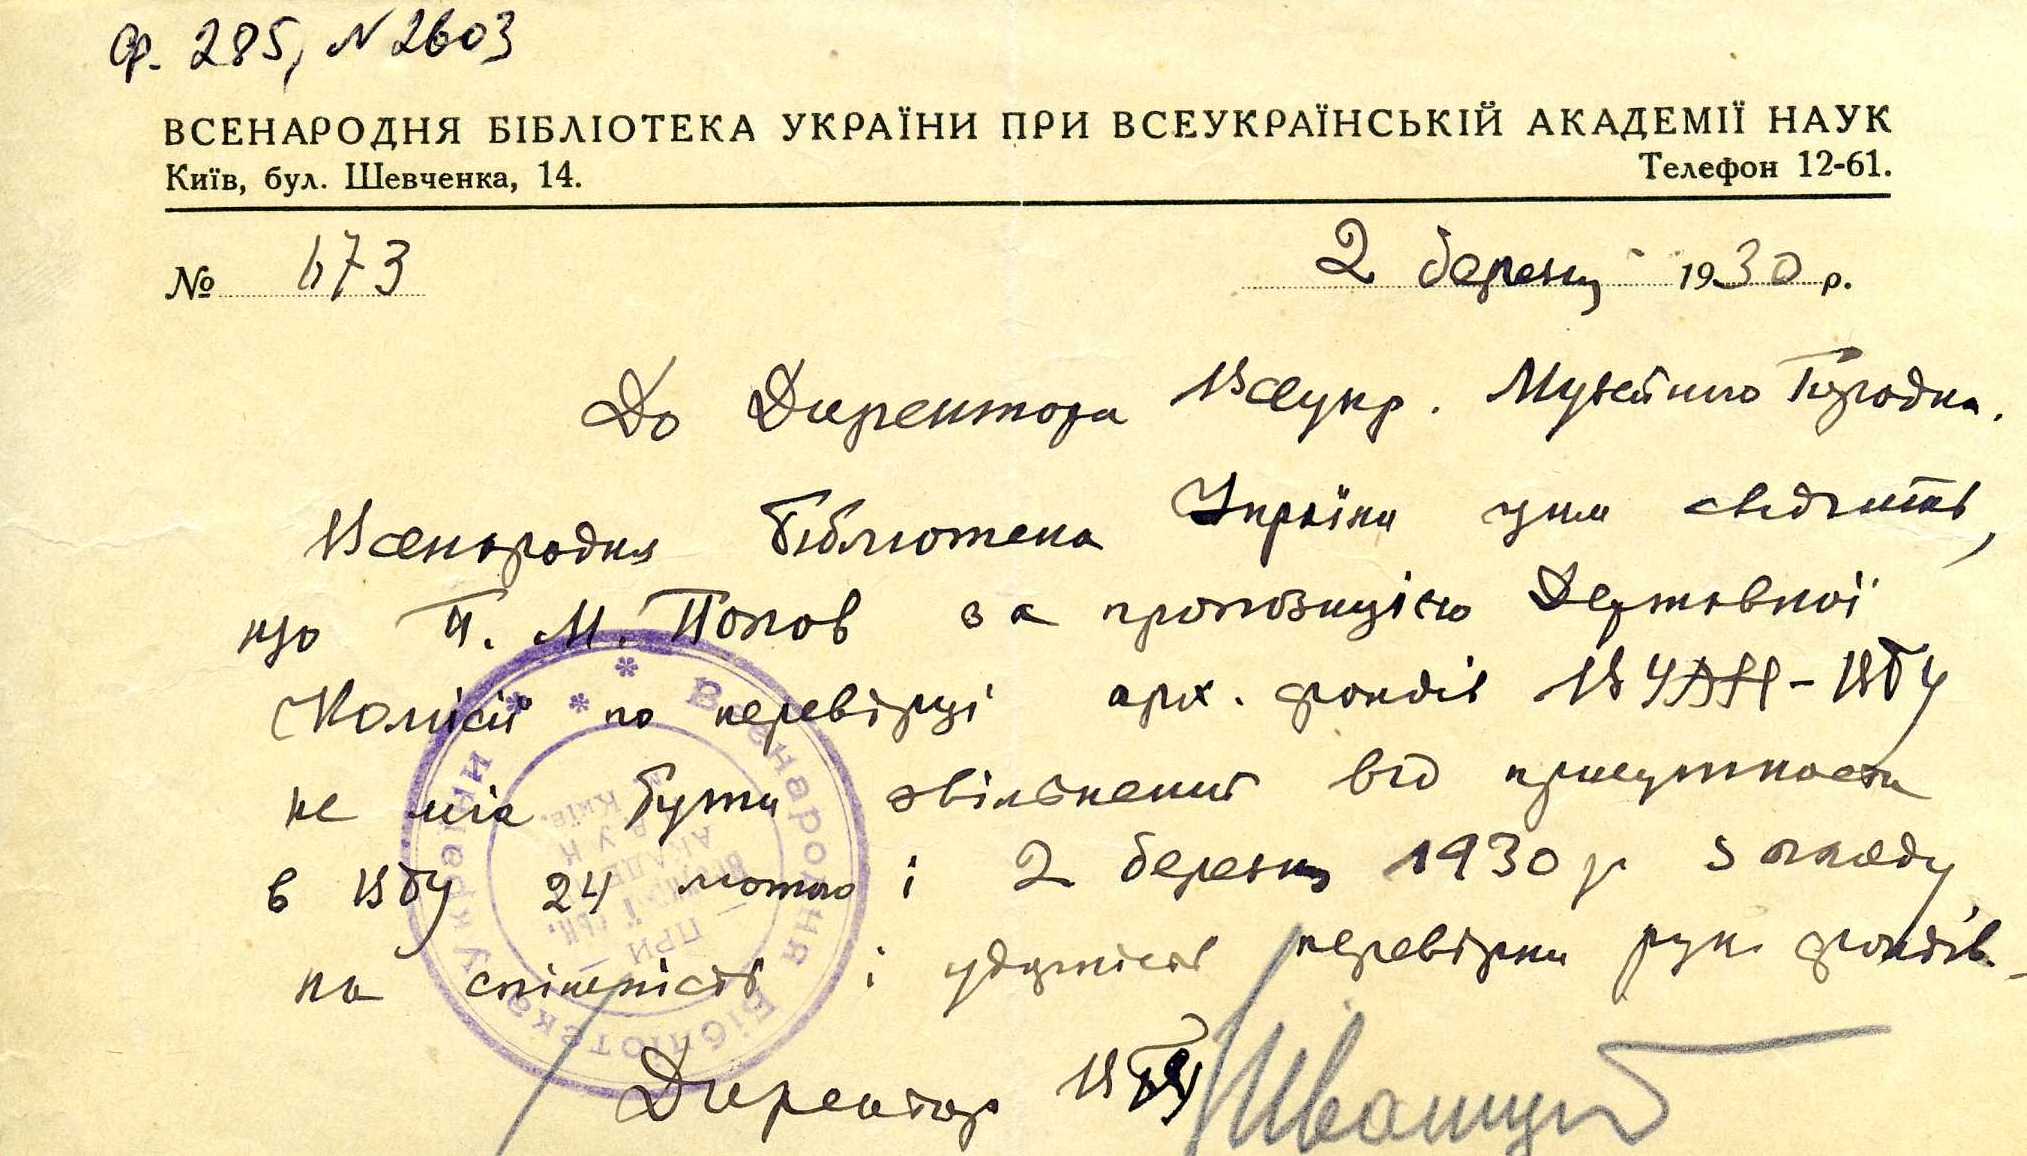 ф. 285, N 2603
ВСЕНАРОДНЯ БІБЛІОТЕКА УКРАЇНИ ПРИ ВСЕУКРАЇНСЬКІЙ АКАДЕМІЇ НАУК
Київ, бул. Шевченка, 14. Телефон 12-61.
№ 673 2 березня 1930 р.
До Директора Всеукр. Музейного Городка.
Всенародня Бібліотека України цим свідчить,
що П. М. Попов за пропозицією Державної
Комісії по перевірці арх. фондів ВУАН-ВБУ
не міг бути звільнений від присутности
в ВБУ 24 лютого і 2 березня 1930 р з огляду
на спішність і перевірки рук. фондів.
Директор ВБУ Іванушк
Всенародня Бібліотека України
ПРИ
АКАДЕМ
НАУК
Київ.